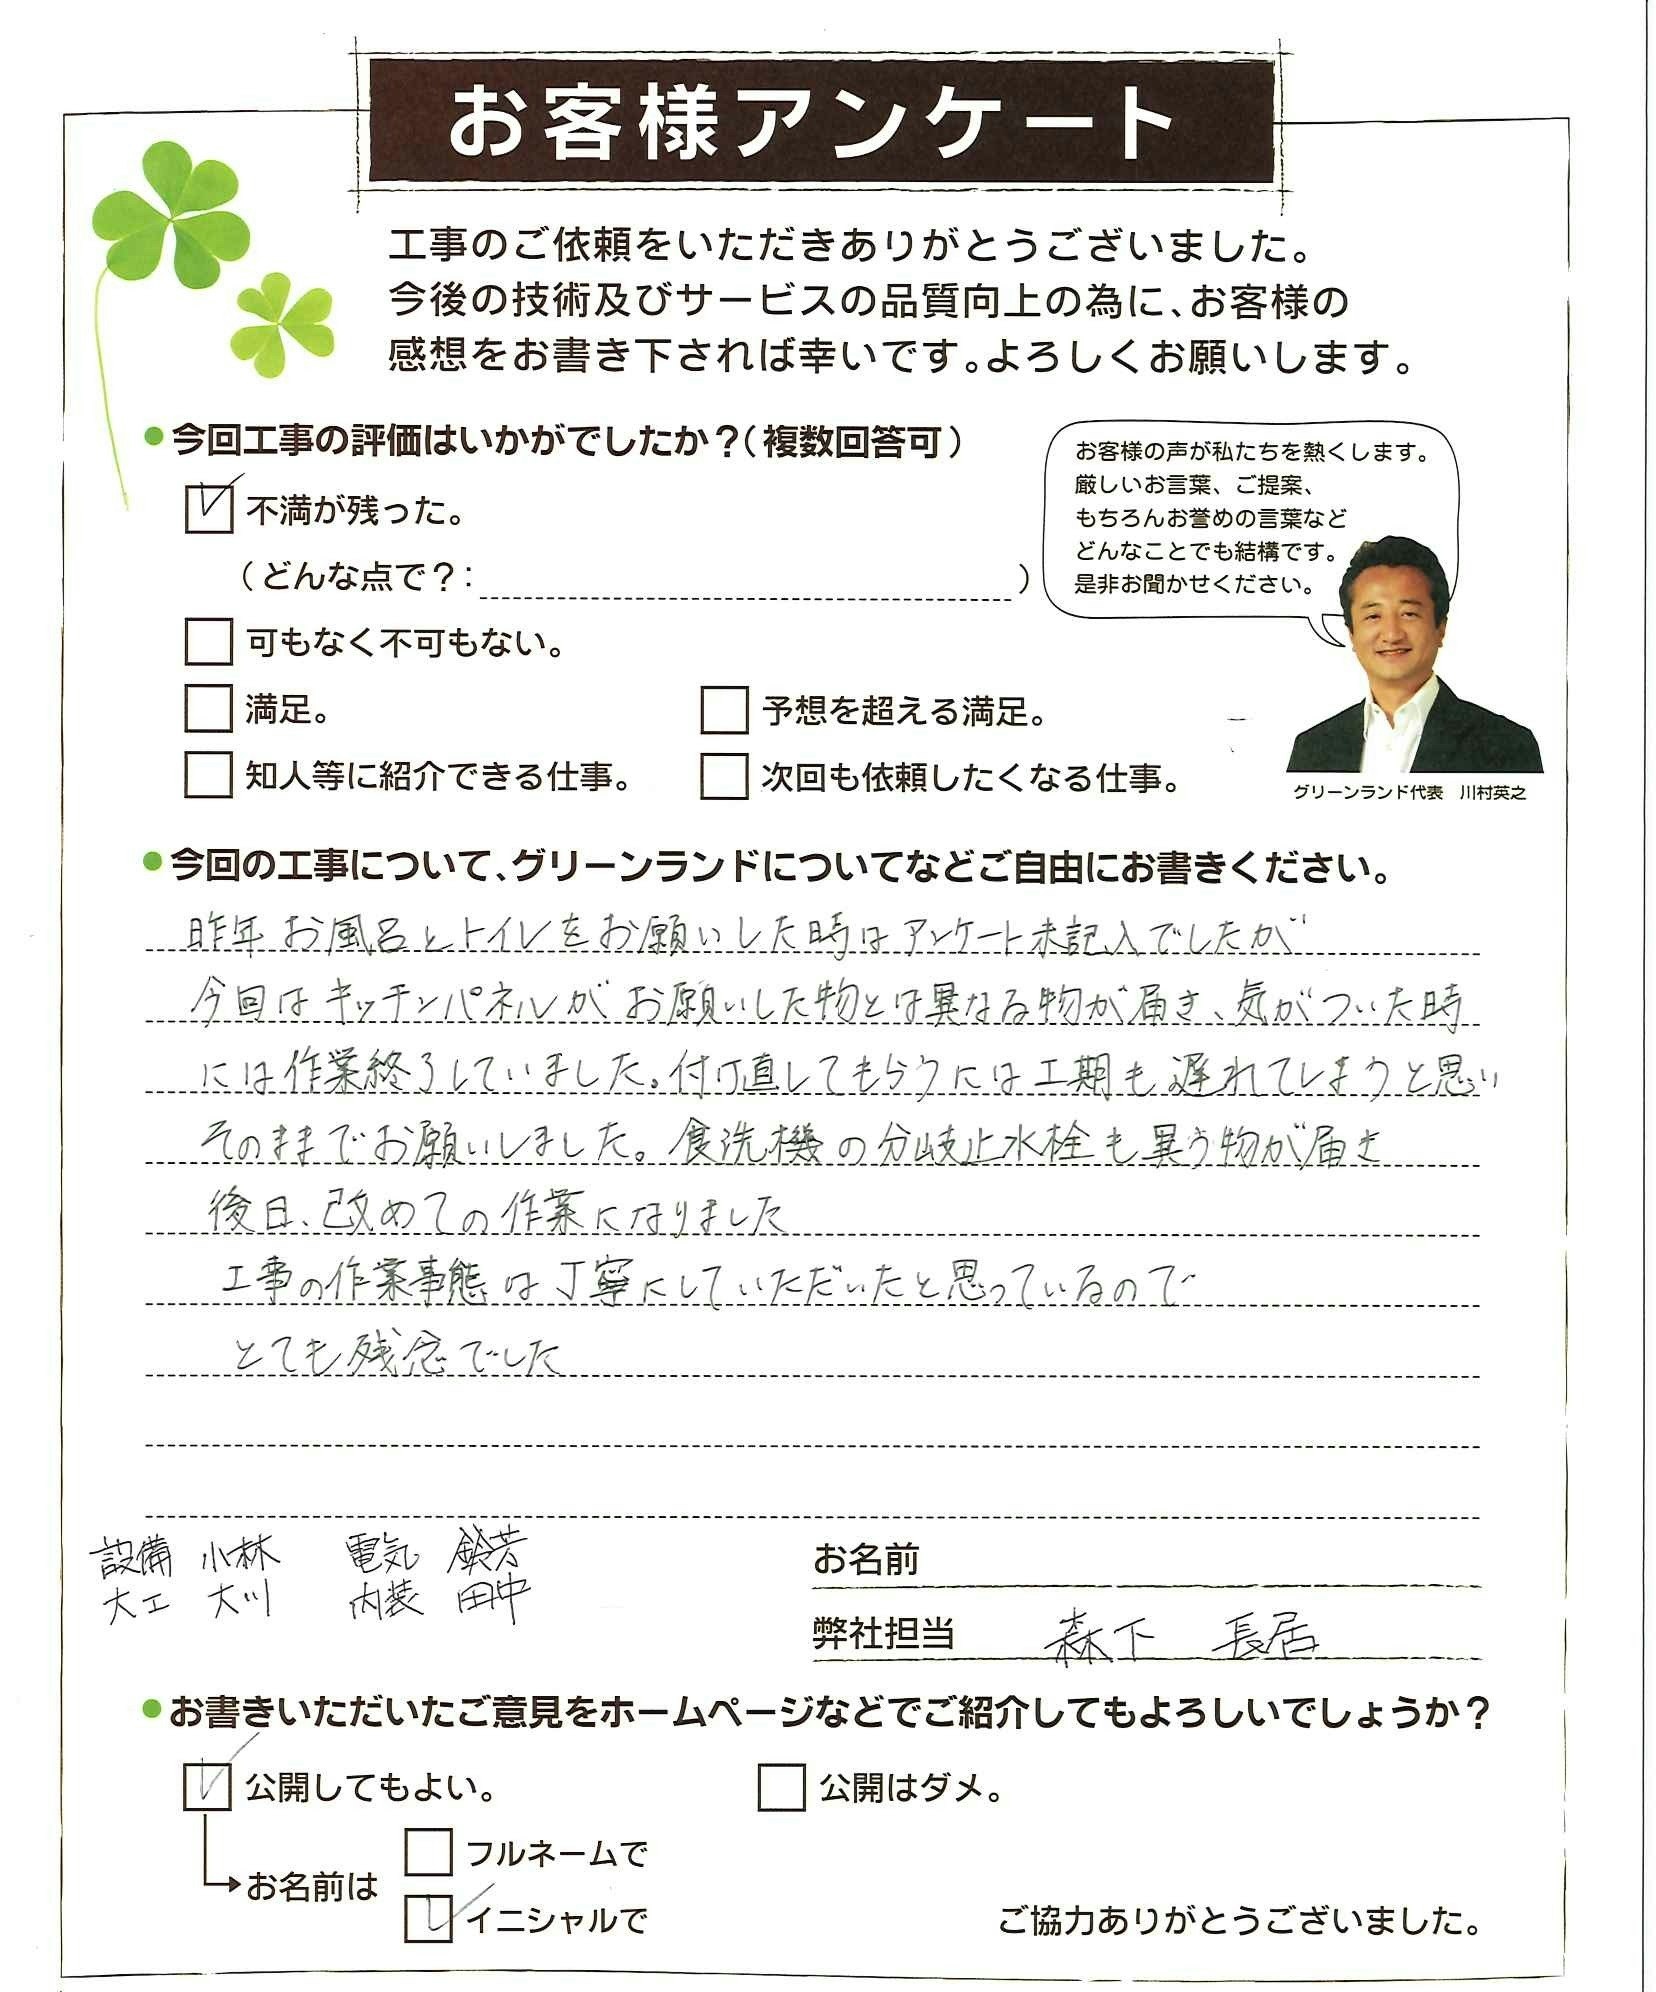 お客様アンケート
工事のご依頼をいただきありがとうございました。
今後の技術及びサービスの品質向上の為に、お客様の
感想をお書き下されば幸いです。よろしくお願いします。
●今回工事の評価はいかがでしたか？(複数回答可)
不満が残った。
(どんな点で？: )
可もなく不可もない。
満足。
予想を超える満足。
知人等に紹介できる仕事。
次回も依頼したくなる仕事。
お客様の声が私たちを熱くします。
厳しいお言葉、ご提案、
もちろんお誉めの言葉など
どんなことでも結構です。
是非お聞かせください。
グリーンランド代表　川村英之
●今回の工事について、グリーンランドについてなどご自由にお書きください。
昨年 お風呂とトイレをお願いした時はアンケート未記入でしたが
今回はキッチンパネルがお願いした物とは異なる物が届き、気がついた時
には作業終了していました。付け直してもらうには工期も遅れてしまうと思い
そのままでお願いしました。食洗機の分岐止水栓も異う物が届き
後日、改めての作業になりました
工事の作業事態は丁寧にしていただいたと思っているので
とても残念でした
設備 小林　電気 鈴芳
大工 大川　内装 田中
お名前
弊社担当　森下　長居
●お書きいただいたご意見をホームページなどでご紹介してもよろしいでしょうか？
公開してもよい。
公開はダメ。
お名前は
フルネームで
イニシャルで
ご協力ありがとうございました。